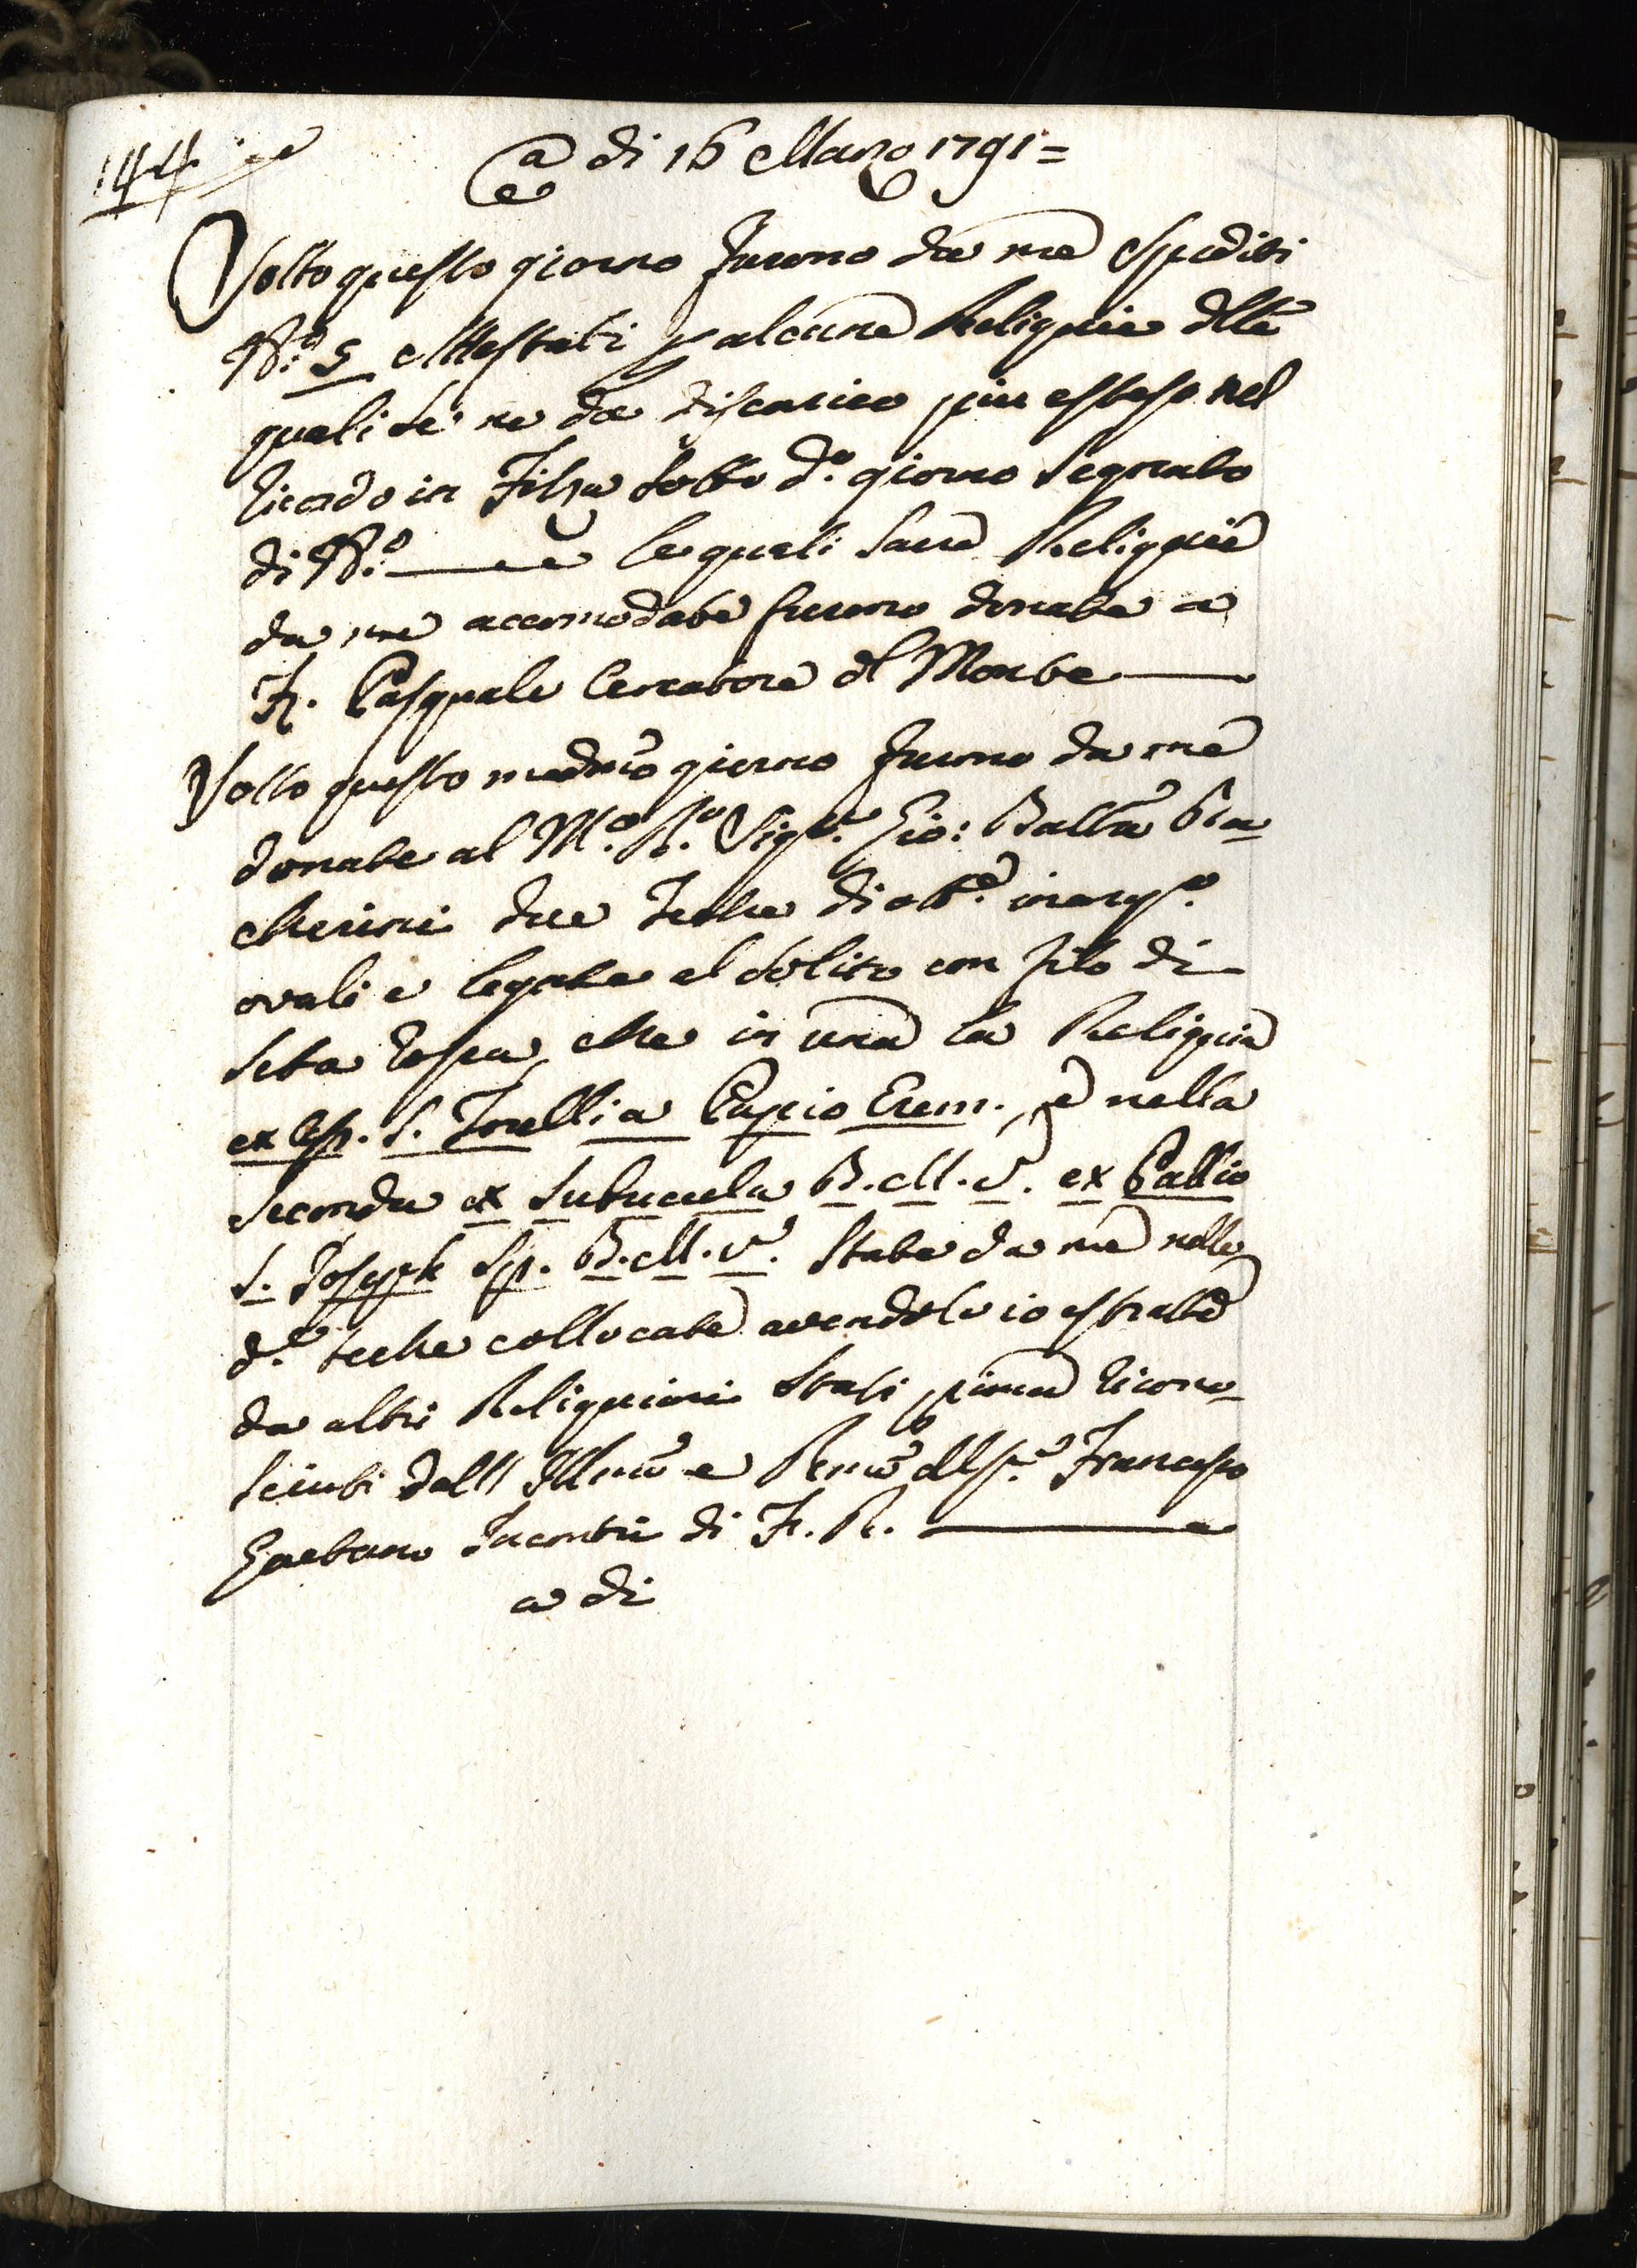 144
a di 16 Marzo 1791 =
Sotto questo giorno furono da me spediti
N.º 5 Attestati p alcune Reliquie dlle
quali se ne da discarico piu esteso nel
ricordo in Filza sotto d.º giorno segnato
di N.º — le quali Sacre Reliquie
da me accomodate furono donate a
Fr. Pasquale Cercatore dl Monte —
Sotto questo medmo giorno furono da me
donate al M.º R.º Sig.e Gio: Batta Bia-
cherini due Teche di ott.e inarg.º
ovali e legate al solito con filo di
seta rossa, che in una la Reliquia
ex Oss. S. Torelli a Puppio Erem., e nella
seconda ex subucula B. M. V. ex Pallio
S. Joseph Sp. B. M. V. State da me nelle
d.e teche collocate avendole io estratte
da altri Reliquiari stati prima ricono-
sciuti dall' Illmo e Rmo Msr.e Francesco
Gaetano Incontri di F. R. —
a di